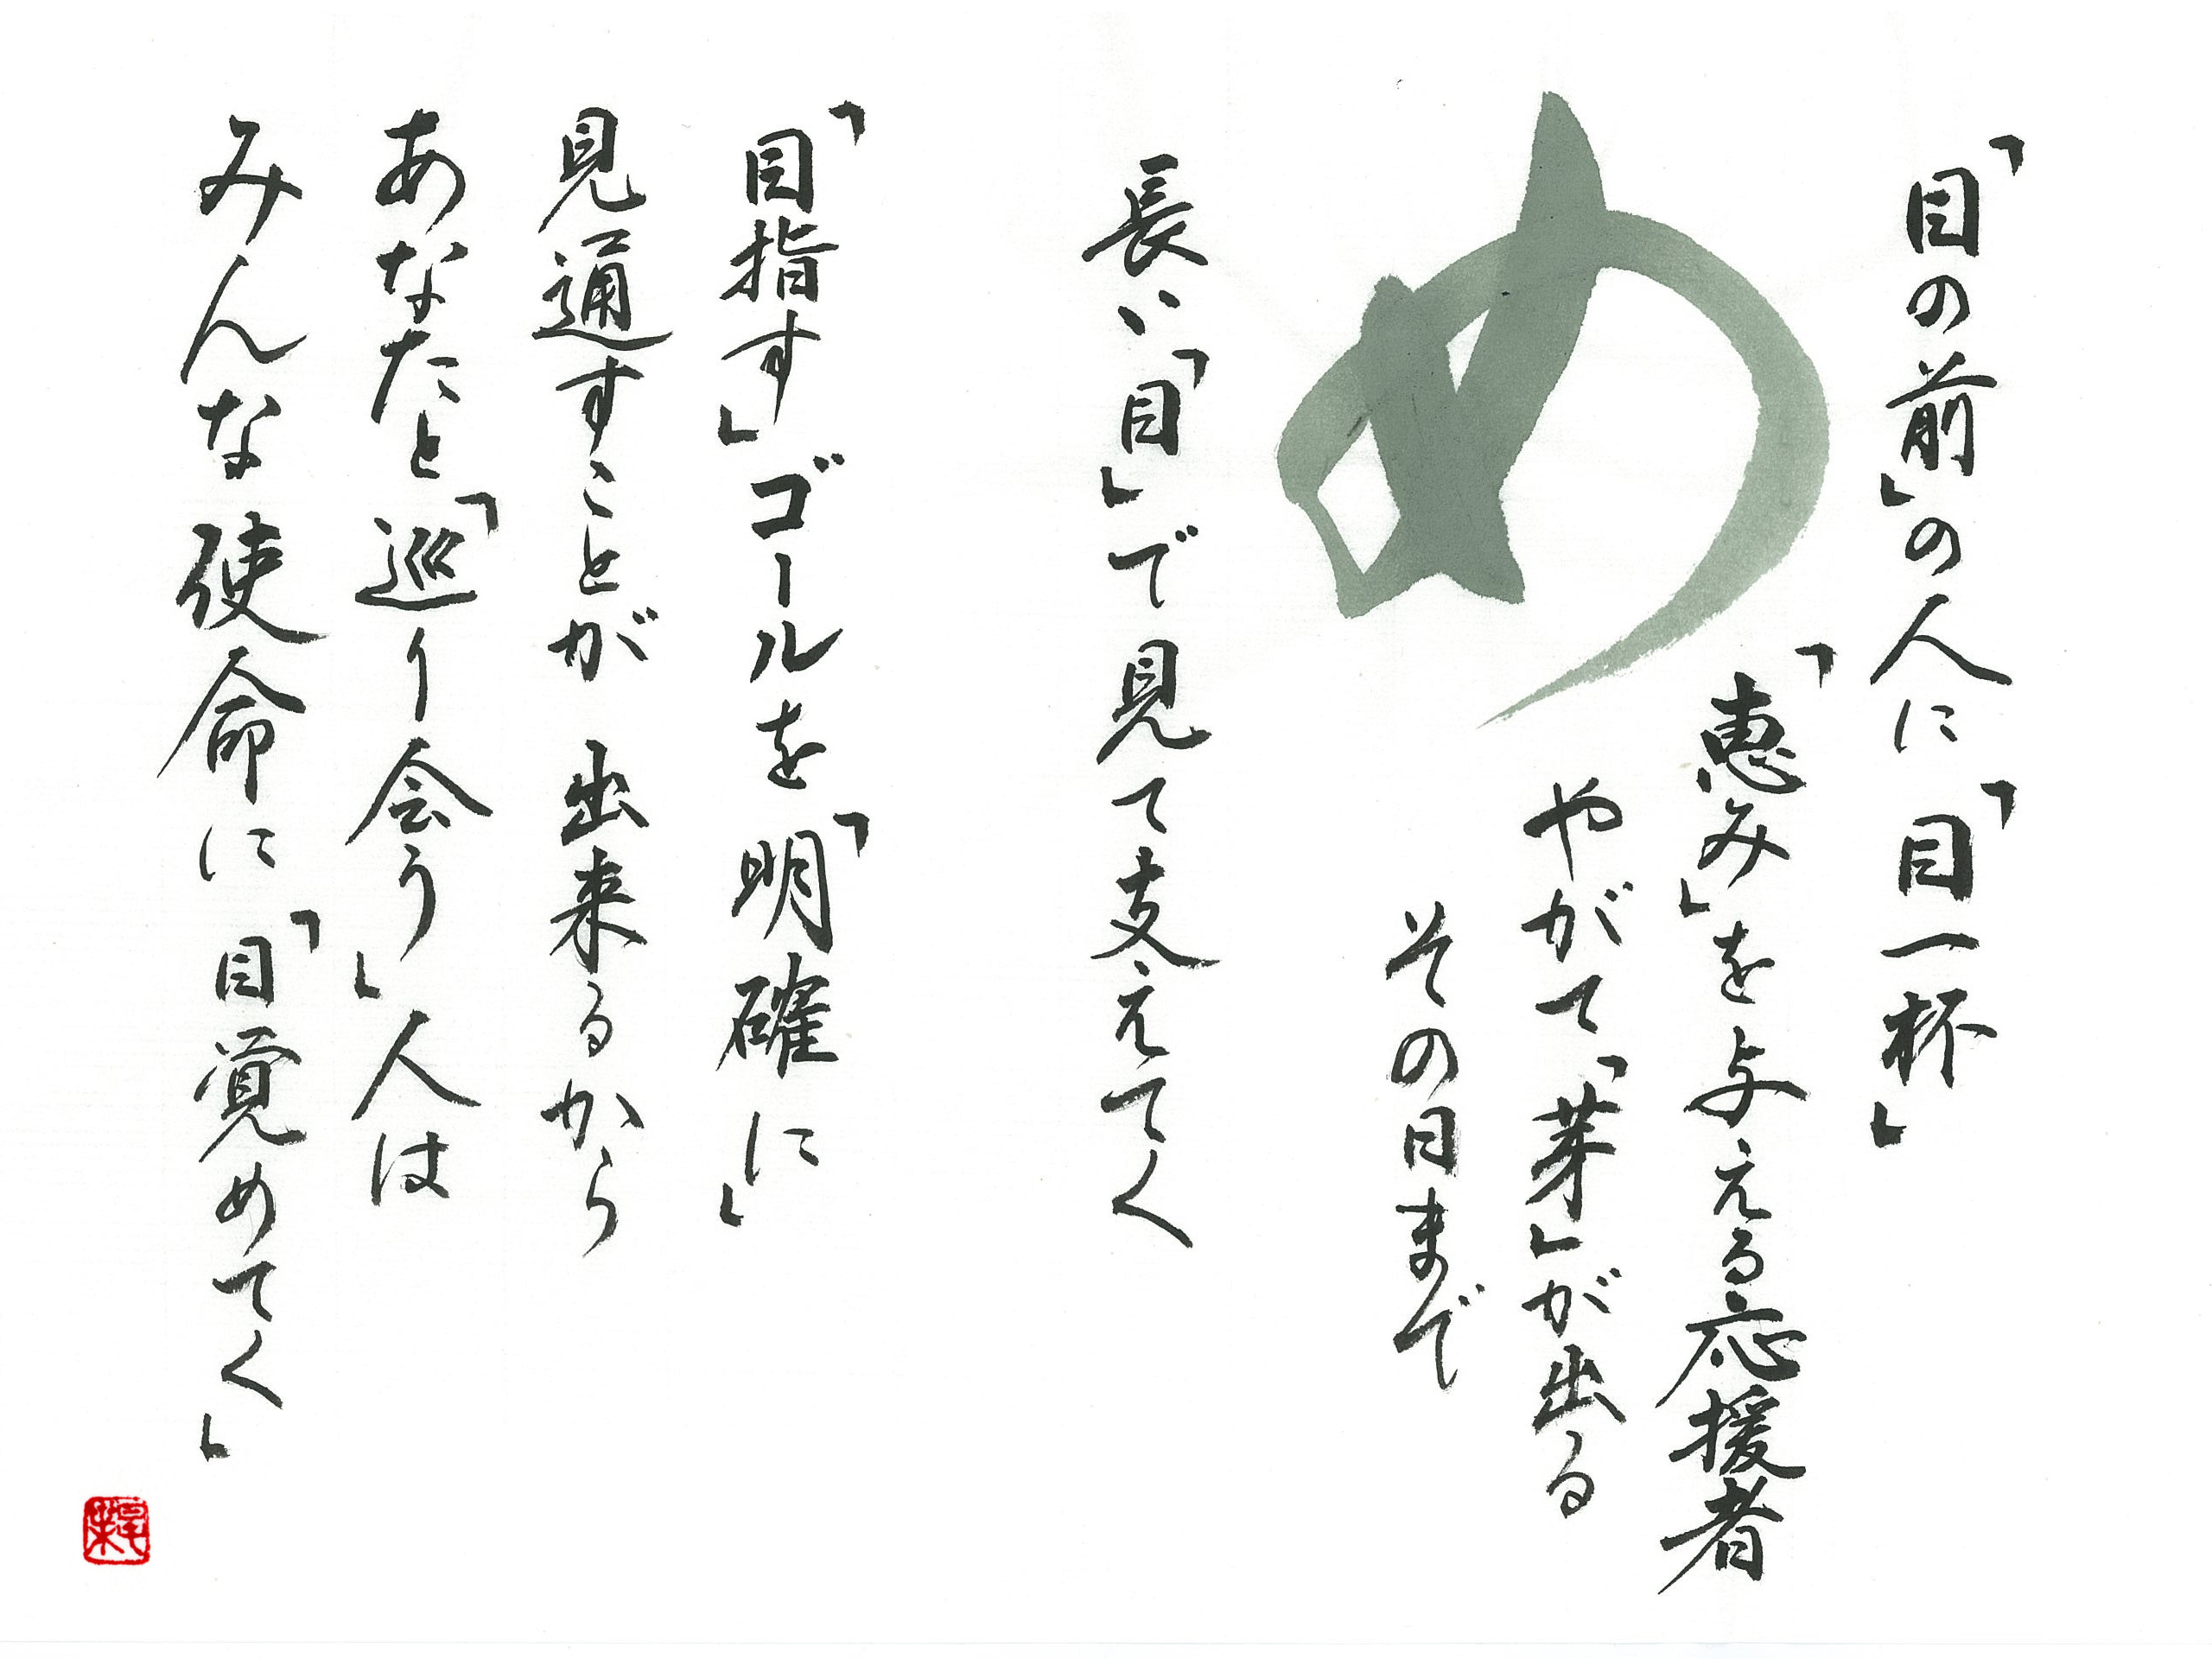 「目の前」の人に「目一杯」
「恵み」を与える応援者
め
やがて「芽」が出る
その日まで
長い「目」で見て支えてく
「目指す」ゴールを「明確に」
見通すことが出来るから
あなたと「巡り会う」人は
みんな使命に「目覚めてく」